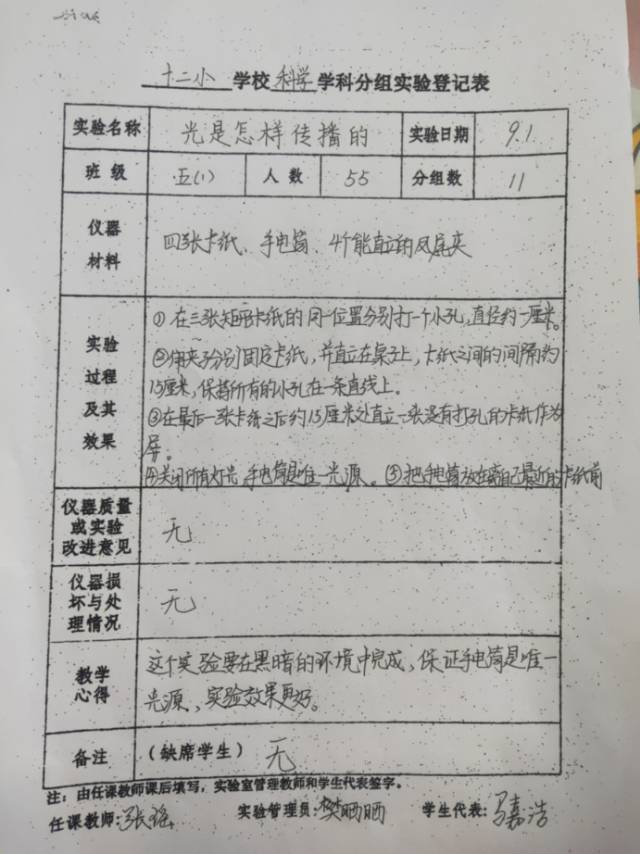 十二小 学校 科学 学科分组实验登记表
实验名称 光是怎样传播的 实验日期 9.1
班 级 五(1) 人 数 55 分组数 11
仪器
材料
四张卡纸、手电筒、4个能直立的凤尾夹
实验
过程
及其
效果
①在三张矩形卡纸的同一位置分别打一个小孔,直径约一厘米。
②用夹子分别固定卡纸,并直立在桌子上,卡纸之间的间隔约
15厘米,保持所有的小孔在一条直线上。
③在最后一张卡纸之后约15厘米处直立一张没有打孔的卡纸作为
屏。
④关闭所有灯光,手电筒是唯一光源。⑤把手电筒放在离自己最近的卡纸前
仪器质量
或实验
改进意见
无
仪器损
坏与处
理情况
无
教学
心得
这个实验要在黑暗的环境中完成,保证手电筒是唯一
光源,实验效果更好。
备注 (缺席学生) 无
注:由任课教师课后填写,实验室管理教师和学生代表签字。
任课教师:张瑶 实验管理员:樊晒晒 学生代表:马嘉浩